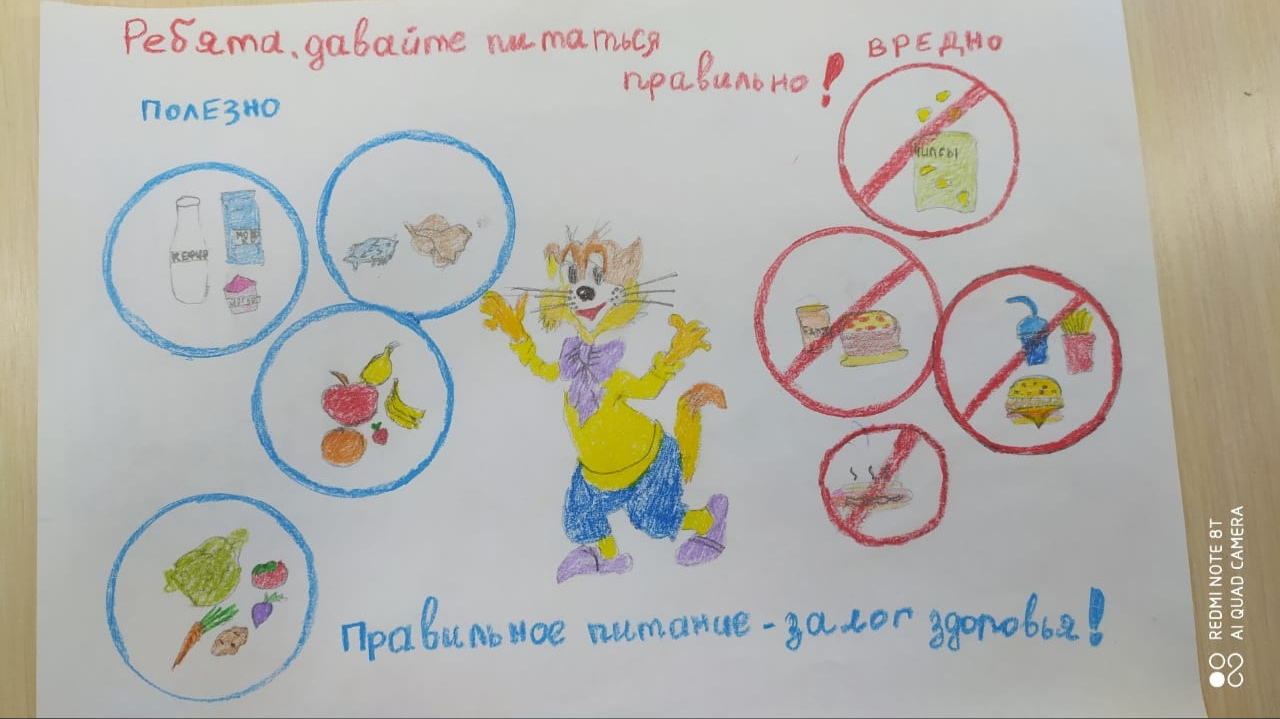 Ребята, давайте питаться
правильно!
ВРЕДНО
ПОЛЕЗНО
ЧИПСЫ
КЕФИР
Правильное питание - залог здоровья!
REDMI NOTE 8T
AI QUAD CAMERA